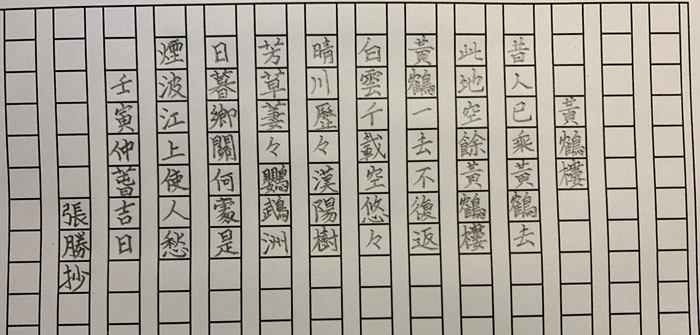 黃鶴樓
昔人已乘黃鶴去
此地空餘黃鶴樓
黃鶴一去不復返
白雲千載空悠々
晴川歷々漢陽樹
芳草萋々鸚鵡洲
日暮鄉關何處是
煙波江上使人愁
壬寅仲萅吉日
張勝抄